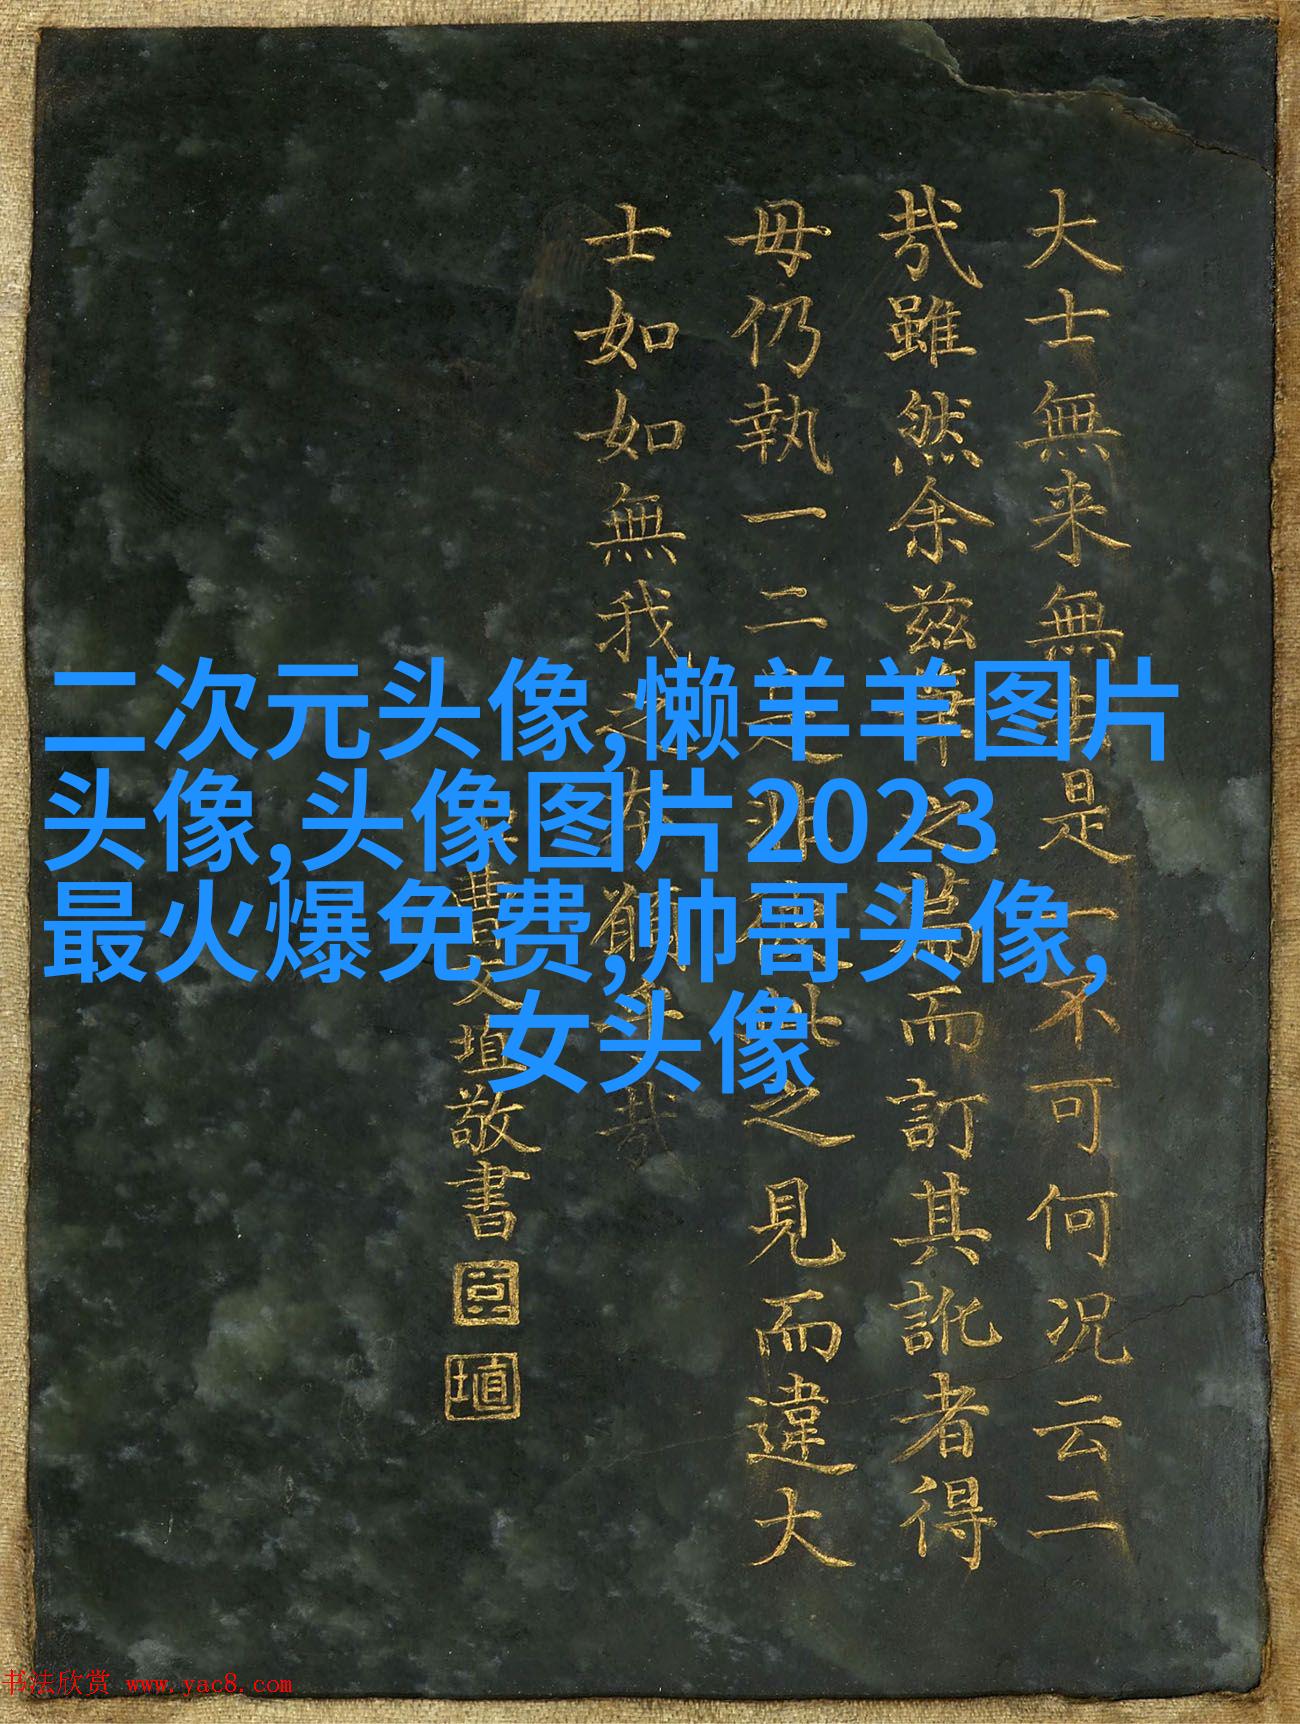 大士無来無是一不可何况云二
哉雖然余兹之而訂其訛者得
毋仍執一二是非彼此之見而違大
士如如無我之本願哉
曹文埴敬書
臣
埴
二次元头像,懒羊羊图片
头像,头像图片2023
最火爆免费,帅哥头像,
女头像
书法欣赏 www.yac8.com